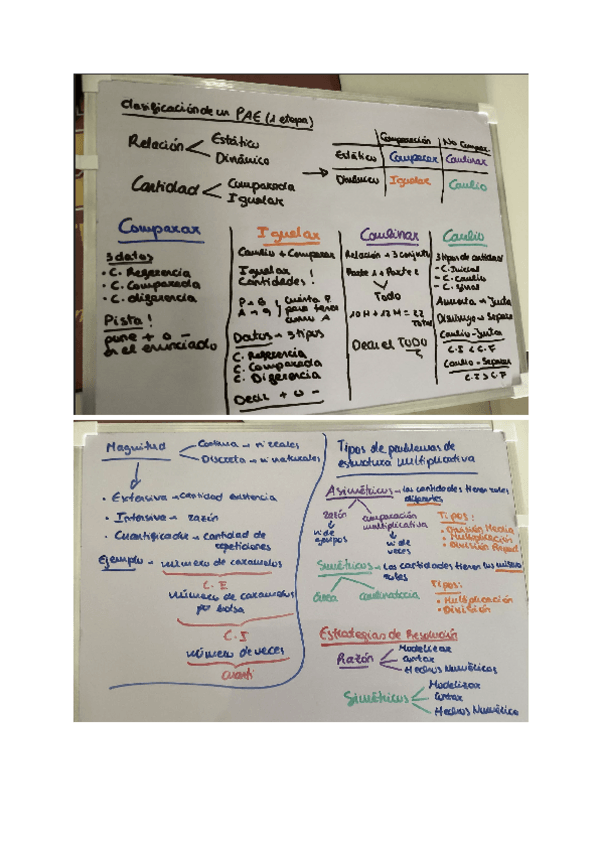 Clasificación de un PAE (1 etapa)
Relación
Estático
Dinámico
Cantidad
Comparada
Igualar
Comparación No Compar.
Estático Comparar Combinar
Dinámico Igualar Cambio
Comparar
3 datos
· C. Referencia
· C. Comparada
· C. diferencia
Pista!
pone + o -
en el enunciado
Igualar
Cambio + Comparar
Igualar !
Cantidades !
cuánto P
para tener
como A
Datos → 3 tipos
C. Referencia
C. Comparada
C. Diferencia
Decir + o -
Combinar
Relación + 3 conjunto
Parte 1 + Parte 2
Todo
10 H + 12 M = 22
Total
Decir el TODO
Cambio
3 tipos de cantidad
- C. Inicial
- C. cambio
- C. final
Aumenta → Junta
Disminuye → Separar
Cambio - Junta
C.I < C.F
Cambio - Separar
C.I > C.F
Magnitud
Continua → nº reales
Discreta → nº naturales
· Extensiva → cantidad existencia
· Intensiva → razón
· Cuantificador → cantidad de
repeticiones
Ejemplo → número de caramelos
C. E
número de caramelos
por bolsa
C. I
número de veces
cuanti
Tipos de problemas de
estructura multiplicativa
Asimétricos → las cantidades tienen roles
diferentes
razón
nº de
grupos
comparación
multiplicativa
nº de
veces
Tipos:
· División Medida
· Multiplicación
· División Repart.
Simétricos → Las cantidades tienen los mismos
roles
área
combinatoria
Tipos:
· Multiplicación
· División
Estrategias de Resolución
Razón
Modelizar
Contar
Hechos Numéricos
Simétricos
Modelizar
Contar
Hechos Numérico